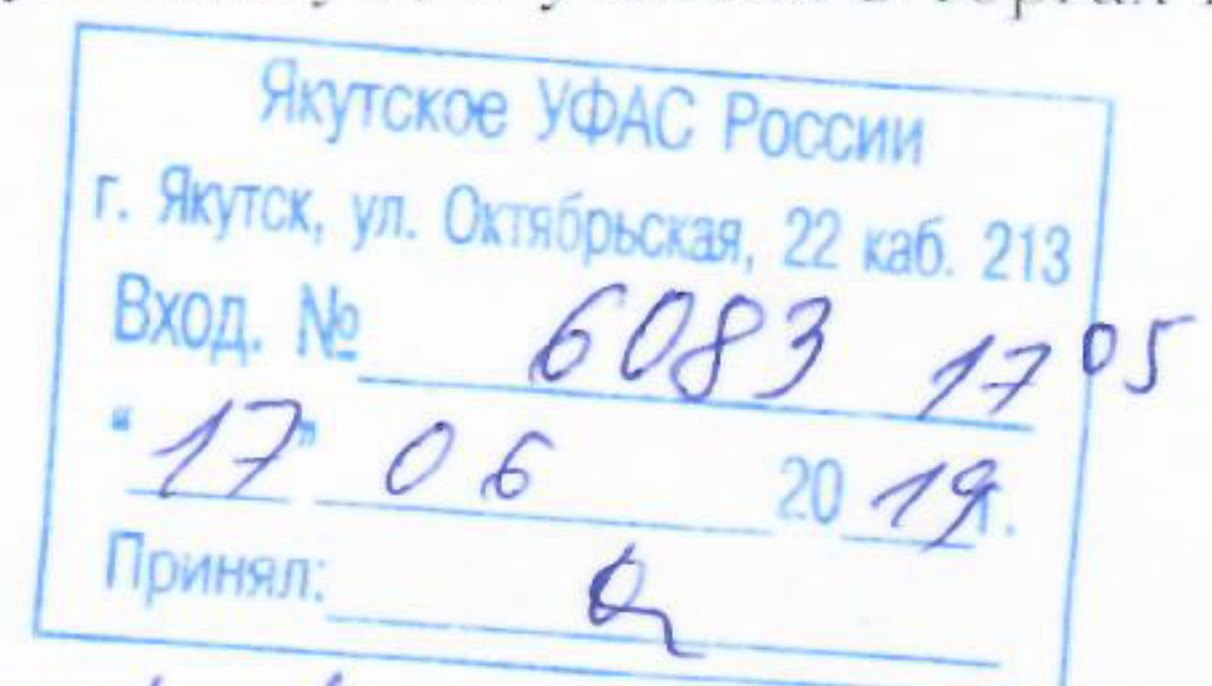 Якутское УФАС России
г. Якутск, ул. Октябрьская, 22 каб. 213
Вход. № 6083 17 05
"17" 06 2019г.
Принял: